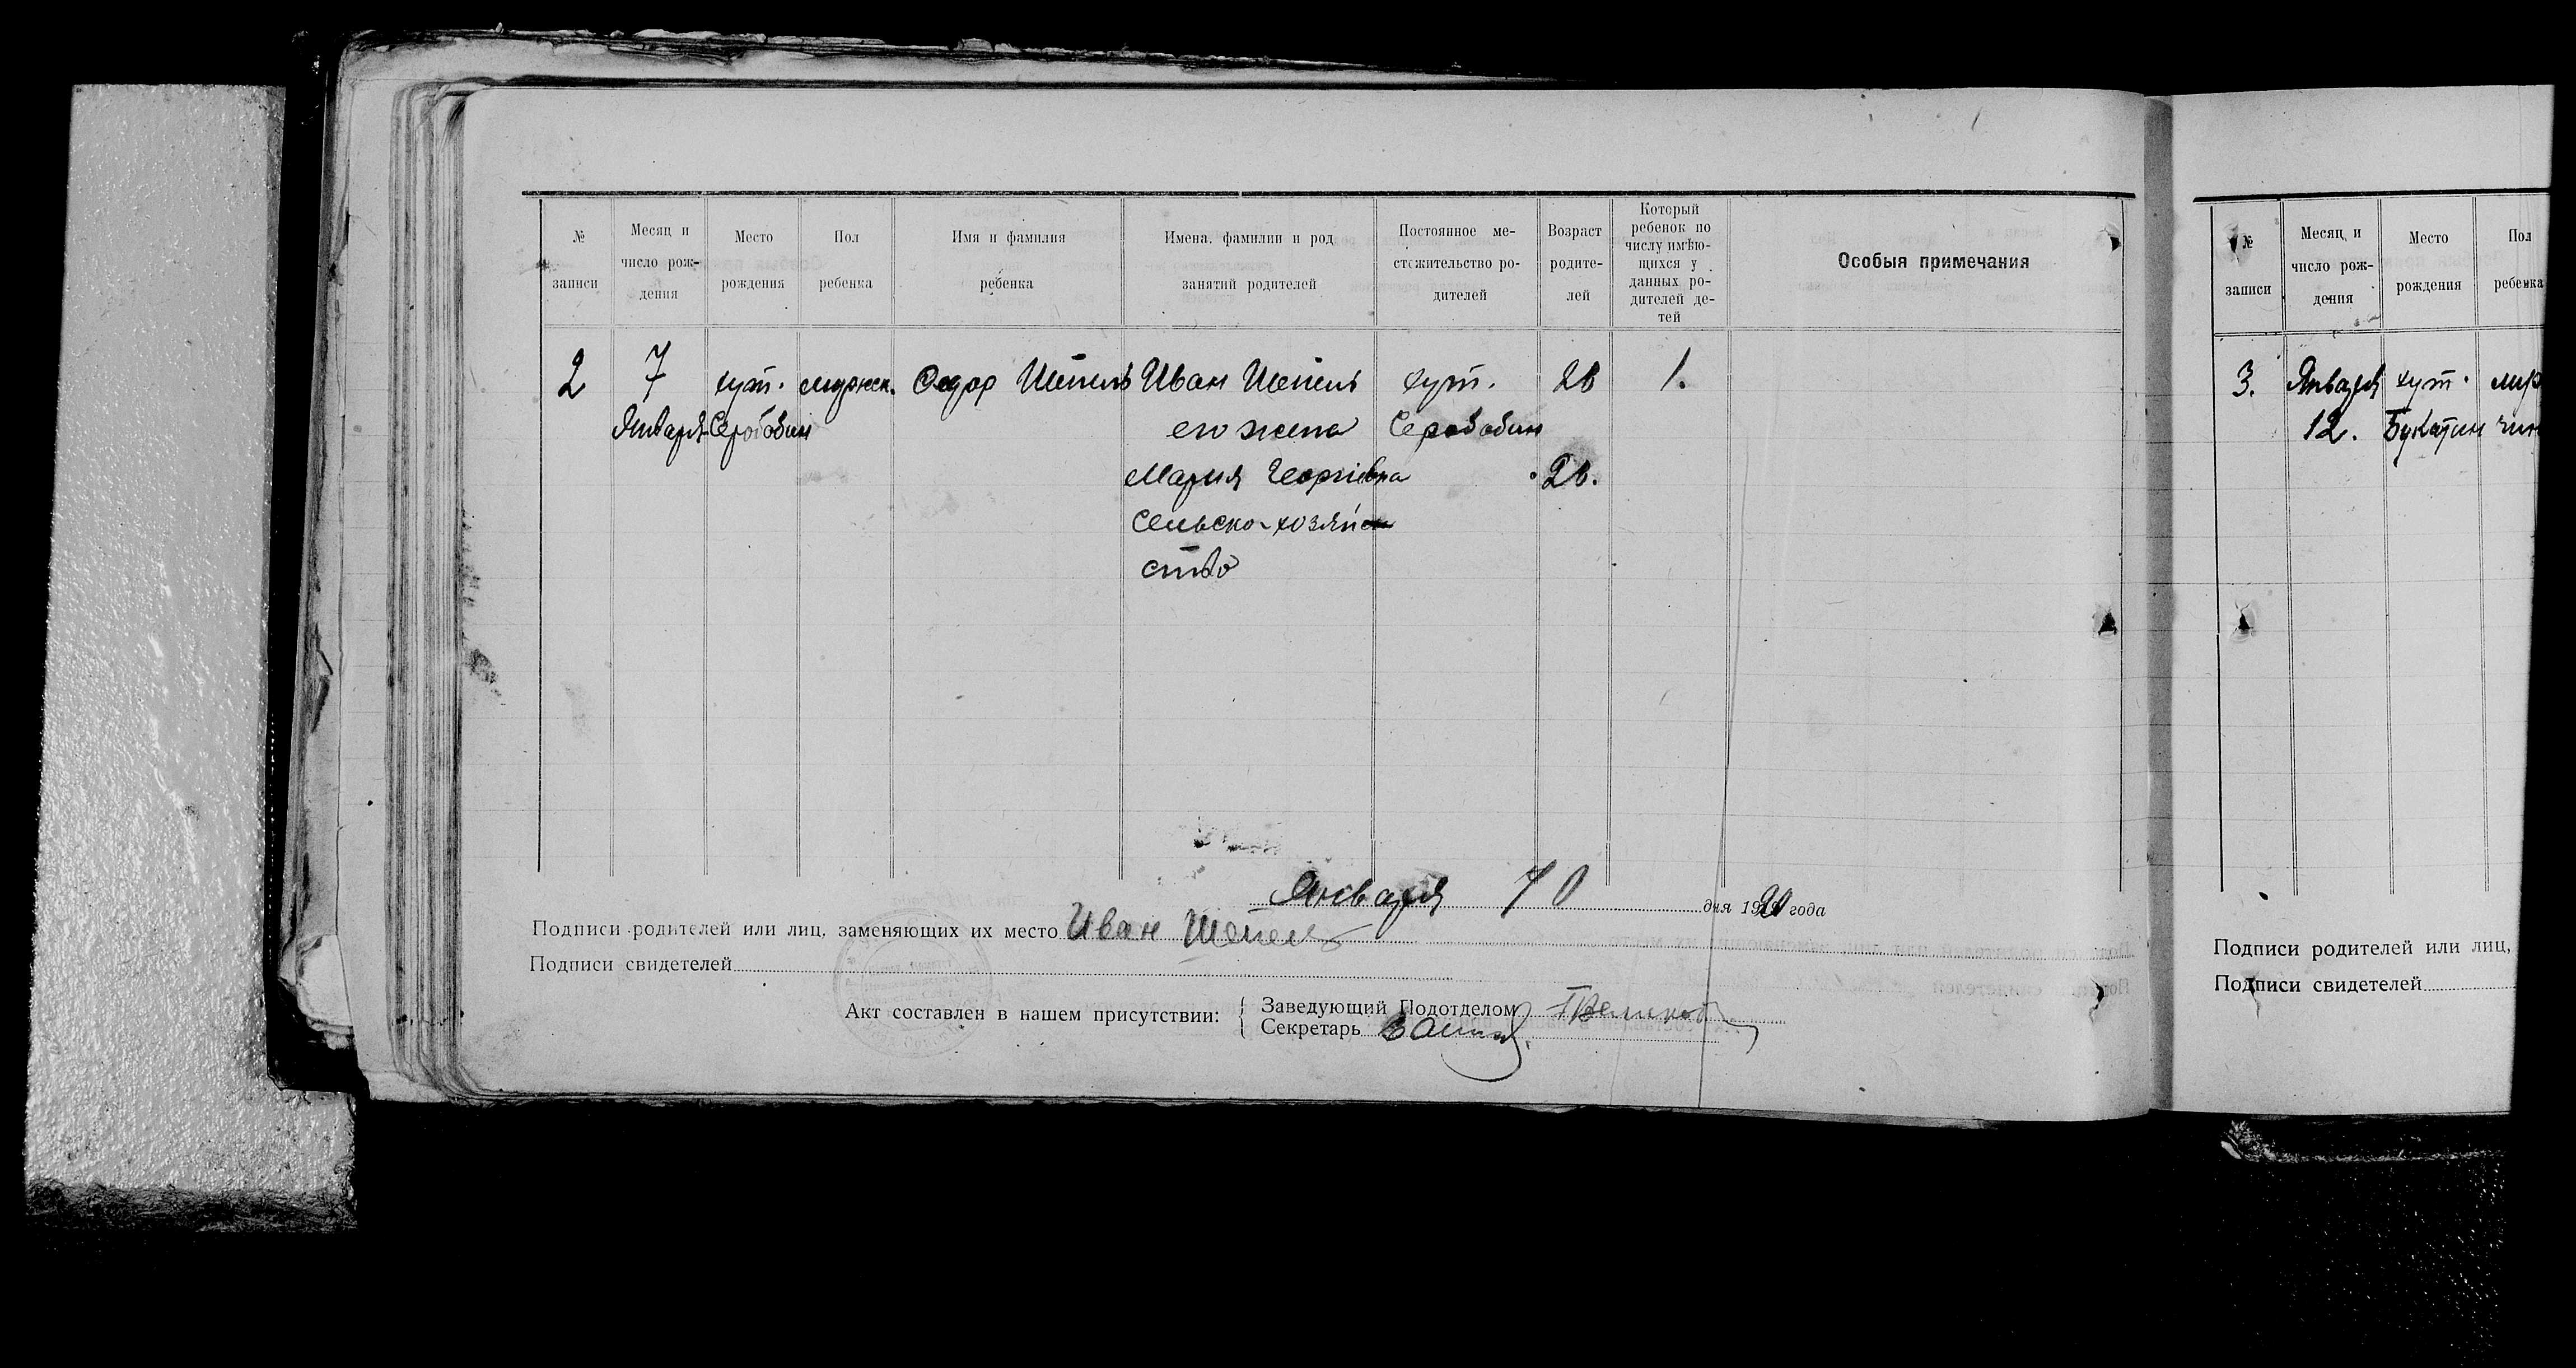 № записи
Месяц и число рождения
Место рождения
Пол ребенка
Имя и фамилия ребенка
Имена, фамилии и род занятий родителей
Постоянное местожительство родителей
Возраст родителей
Который ребенок по числу имѣющихся у данных родителей детей
Особыя примечания
2
7 Января
хут. Серобабин
мужск.
Федор Шепель
Иван Шепель
его жена
Мария Георгіевна
сельско-хозяйс
ство
хут.
Серобабин
26
26.
1.
Января 10 дня 1920 года
Подписи родителей или лиц, заменяющих их место Иван Шепель
Подписи свидетелей
Акт составлен в нашем присутствии:
Заведующий Подотделом
Секретарь
№ записи
Месяц и число рождения
Место рождения
Пол ребенка
3.
Января 12.
хут. Букатин
Подписи родителей или лиц,
Подписи свидетелей